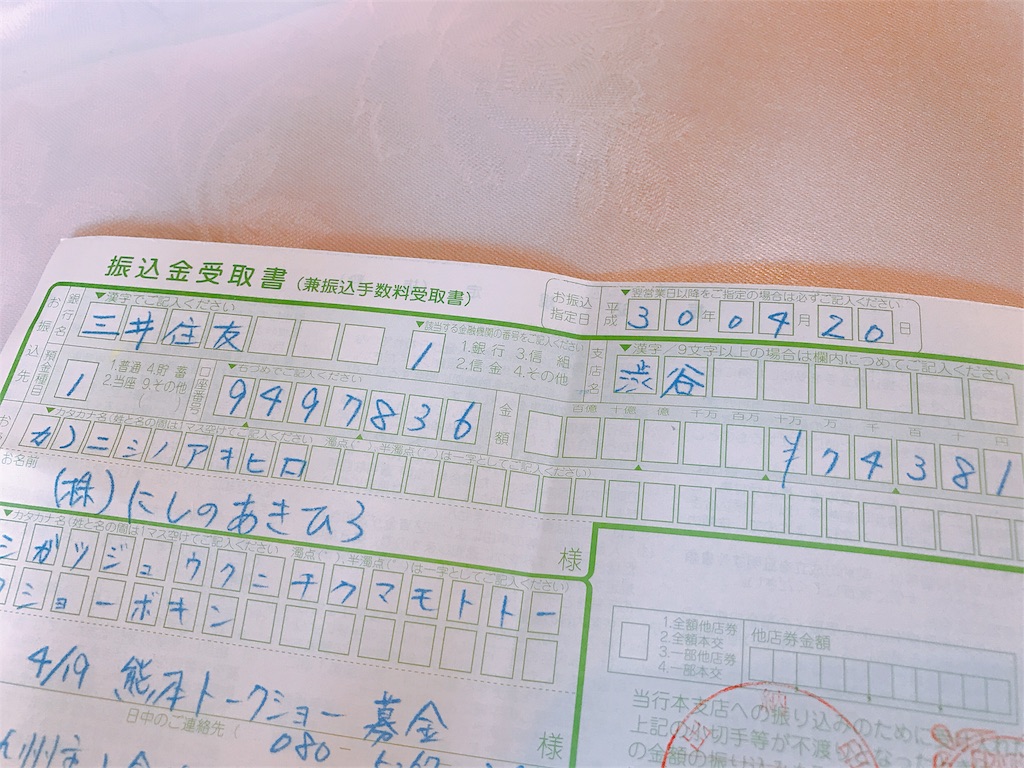 振込金受取書(兼振込手数料受取書)
お振込指定日
▼翌営業日以降をご指定の場合は必ずご記入ください
平成30年04月20日
お振込先
銀行名
▼漢字でご記入ください
三井住友
▼該当する金融機関の番号をご記入ください
1
1.銀行 3.信組
2.信金 4.その他
支店名
▼漢字/9文字以上の場合は欄内につめてご記入ください
渋谷
預金種目
1
1.普通 4.貯蓄
2.当座 9.その他
口座番号
▼右づめでご記入ください
9497836
金額
百億 十億 億 千万 百万 十万 万 千 百 十 円
¥74381
▼カタカナ名(姓と名の間は1マス空けてご記入ください 濁点(゛)、半濁点(゜)は一字としてご記入ください)
カ)ニシノアキヒロ
お名前
(株)にしのあきひろ
様
▼カタカナ名(姓と名の間は1マス空けてご記入ください 濁点(゛)、半濁点(゜)は一字としてご記入ください)
シガツジュウクニチクマモトトー
クショーボキン
4/19 熊本トークショー 募金
様
日中のご連絡先(
080-
1.全額他店券
2.全額本交
3.一部他店券
4.一部本交
他店券金額
当行本支店への振り込みのために
上記の小切手等が不渡
の金額の振り込み